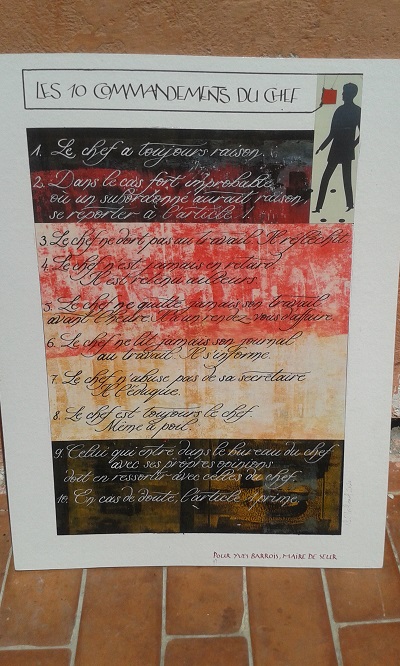 LES 10 COMMANDEMENTS DU CHEF
1. Le chef a toujours raison.
2. Dans le cas fort improbable
où un subordonné aurait raison
se reporter à l'article 1.
3. Le chef ne dort pas au travail. Il réfléchit.
4. Le chef n'est jamais en retard
Il est retenu ailleurs.
5. Le chef ne quitte jamais son travail
avant l'heure. Il a un rendez vous d'affaire.
6. Le chef ne lit jamais son journal
au travail. Il s'informe.
7. Le chef n'abuse pas de sa secrétaire
Il l'éduque.
8. Le chef est toujours le chef.
Même à poil.
9. Celui qui entre dans le bureau du chef
avec ses propres opinions
doit en ressortir avec celles du chef.
10. En cas de doute, l'article 1 prime
POUR YVES BARROIS, MAIRE DE SEUR